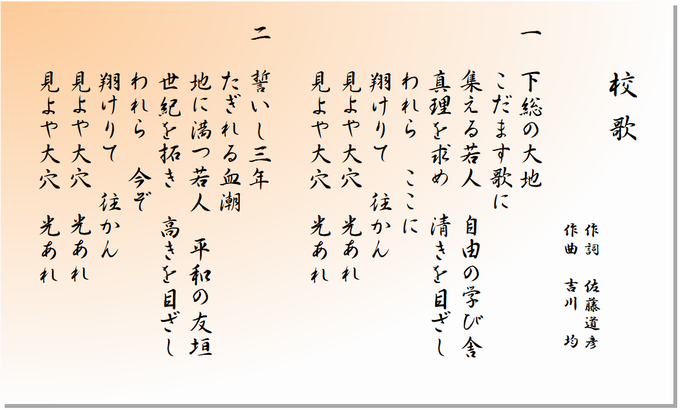 校歌
作詞　佐藤道彦
作曲　吉川　均
一　下総の大地
こだます歌に
集える若人　自由の学び舎
真理を求め　清きを目ざし
われら　ここに
翔けりて　往かん
見よや大穴　光あれ
見よや大穴　光あれ
二　誓いし三年
たぎれる血潮
地に満つ若人　平和の友垣
世紀を拓き　高きを目ざし
われら　今ぞ
翔けりて　往かん
見よや大穴　光あれ
見よや大穴　光あれ